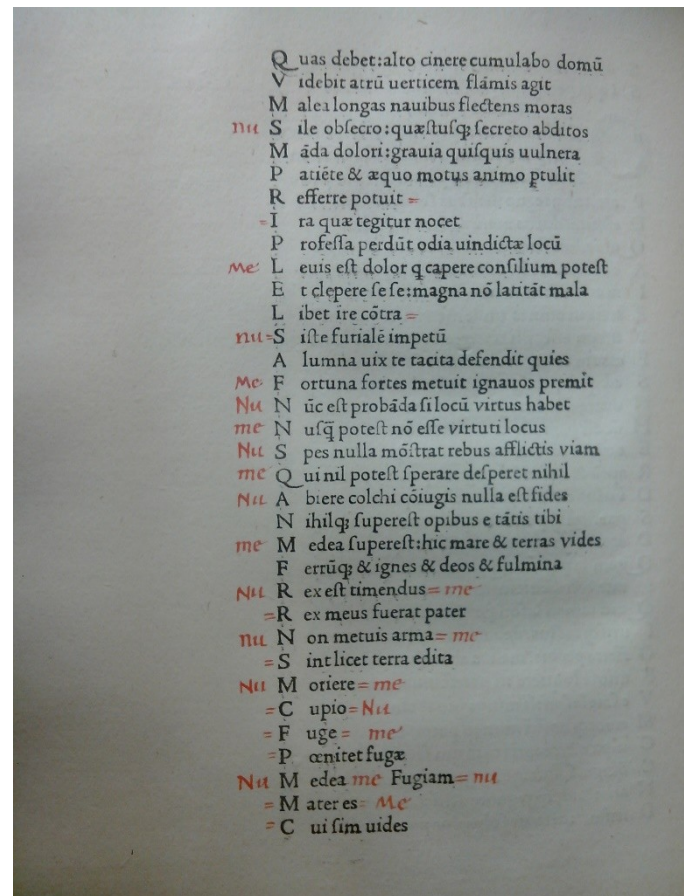 Quas debet:alto cinere cumulabo domū
Videbit atrū uerticem flāmis agit
Malea longas nauibus flectens moras
nu Sile obſecro:quæſtuſq; ſecreto abditos
Māda dolori:grauia quiſquis uulnera
Patiēte & æquo motus animo ꝑtulit
Refferre potuit =
=Ira quæ tegitur nocet
Profeſſa perdūt odia uindictæ locū
Me: Leuis eſt dolor q capere conſilium poteſt
Et clepere ſe ſe:magna nō latitāt mala
Libet ire cōtra =
nu=Siſte furialē impetū
Alumna uix te tacita defendit quies
Me: Fortuna fortes metuit ignauos premit
Nu Nūc eſt probāda ſi locū virtus habet
me Nuſq̄ poteſt nō eſſe virtuti locus
Nu Spes nulla mōſtrat rebus afflictis viam
me Qui nil poteſt ſperare deſperet nihil
Nu Abiere colchi cōiugis nulla eſt fides
Nihilq; ſupereſt opibus e tātis tibi
me Medea ſupereſt:hic mare & terras vides
Ferrūq; & ignes & deos & fulmina
Nu Rex eſt timendus= me
=Rex meus fuerat pater
nu Non metuis arma= me
=Sint licet terra edita
Nu Moriere= me
=Cupio=Nu
=Fuge= me
=Pœnitet fugæ
Nu Medea me Fugiam= nu
=Mater es= Me
=Cui ſim uides